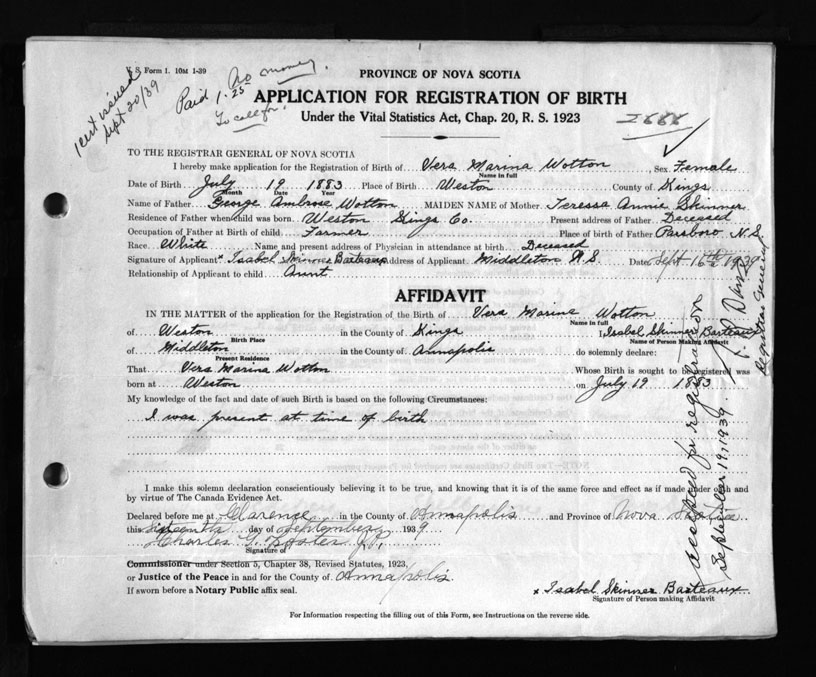 V. S. Form 1. 10M 1-39
1 cert issued
Sept 20/39
Paid 1.25
No money.
To call for.
PROVINCE OF NOVA SCOTIA
APPLICATION FOR REGISTRATION OF BIRTH
Under the Vital Statistics Act, Chap. 20, R. S. 1923
TO THE REGISTRAR GENERAL OF NOVA SCOTIA
I hereby make application for the Registration of Birth of Vera Marina Wotton Sex Female
Name in full
Date of Birth July 19 1883 Place of Birth Weston County of Kings
Month Date Year
Name of Father George Ambrose Wotton MAIDEN NAME of Mother Teressa Annie Skinner
Residence of Father when child was born Weston Kings Co. Present address of Father Deceased
Occupation of Father at Birth of child Farmer Place of birth of Father Parsboro N.S.
Race White Name and present address of Physician in attendance at birth Deceased
Signature of Applicant x Isabel Skinner Barteaux Address of Applicant Middleton N.S. Date Sept 16th 1939
Relationship of Applicant to child Aunt
AFFIDAVIT
IN THE MATTER of the application for the Registration of the Birth of Vera Marina Wotton
Name in full
of Weston in the County of Kings I, Isabel Skinner Barteaux
Birth Place Name of Person Making Affidavit
of Middleton in the County of Annapolis do solemnly declare:
Present Residence
That Vera Marina Wotton Whose Birth is sought to be registered was
born at Weston on July 19 1883
My knowledge of the fact and date of such Birth is based on the following Circumstances:
I was present at time of birth
I make this solemn declaration conscientiously believing it to be true, and knowing that it is of the same force and effect as if made under oath and
by virtue of The Canada Evidence Act.
Declared before me at Clarence in the County of Annapolis and Province of Nova Scotia
this Sixteenth day of September 1939
Charles G. Foster J.P.
Signature of
Commissioner under Section 5, Chapter 38, Revised Statutes, 1923,
or Justice of the Peace in and for the County of Annapolis
If sworn before a Notary Public affix seal.
x Isabel Skinner Barteaux
Signature of Person making Affidavit
For Information respecting the filling out of this Form, see Instructions on the reverse side.
Accepted for registration
September 19, 1939
Registrar General